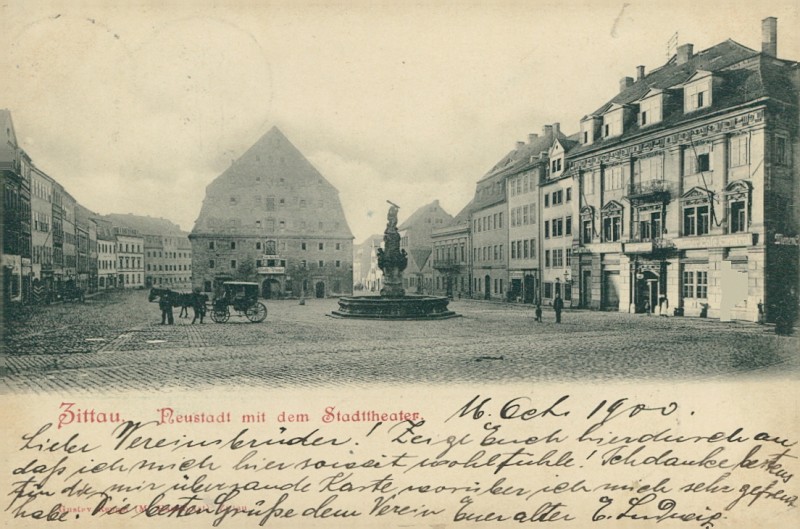 Zittau. Neustadt mit dem Stadttheater.
16. Oct. 1900.
Lieber Vereinsbrüder! Zeige Euch hierdurch an
daß ich mich hier soweit wohlfühle! Ich danke bestens
für die mir übersande Karte worüber ich mich sehr gefreut
habe. Die besten Grüße dem Verein Euer alter E. Ludwig.